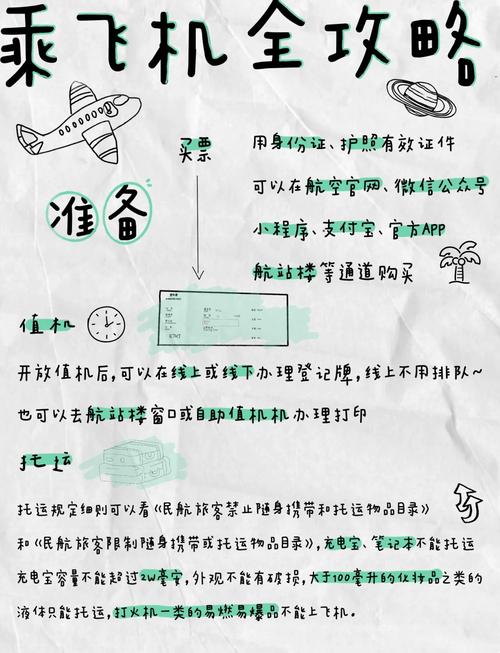 乘飞机全攻略
买票
用身份证、护照有效证件
可以在航空官网、微信公众号
小程序、支付宝、官方APP
航站楼等通道购买
准备
值机
开放值机后,可以在线上或线下办理登记牌,线上不用排队~
也可以去航站楼窗口或自助值机机办理打印
托运
托运规定细则可以看《民航旅客禁止随身携带和托运物品目录》
和《民航旅客限制随身携带或托运物品目录》,充电宝、笔记本不能托运
充电宝容量不能超过2W毫安,外观不能有破损,大于100毫升的化妆品之类的
液体只能托运,打火机一类的易燃易爆品不能上飞机。